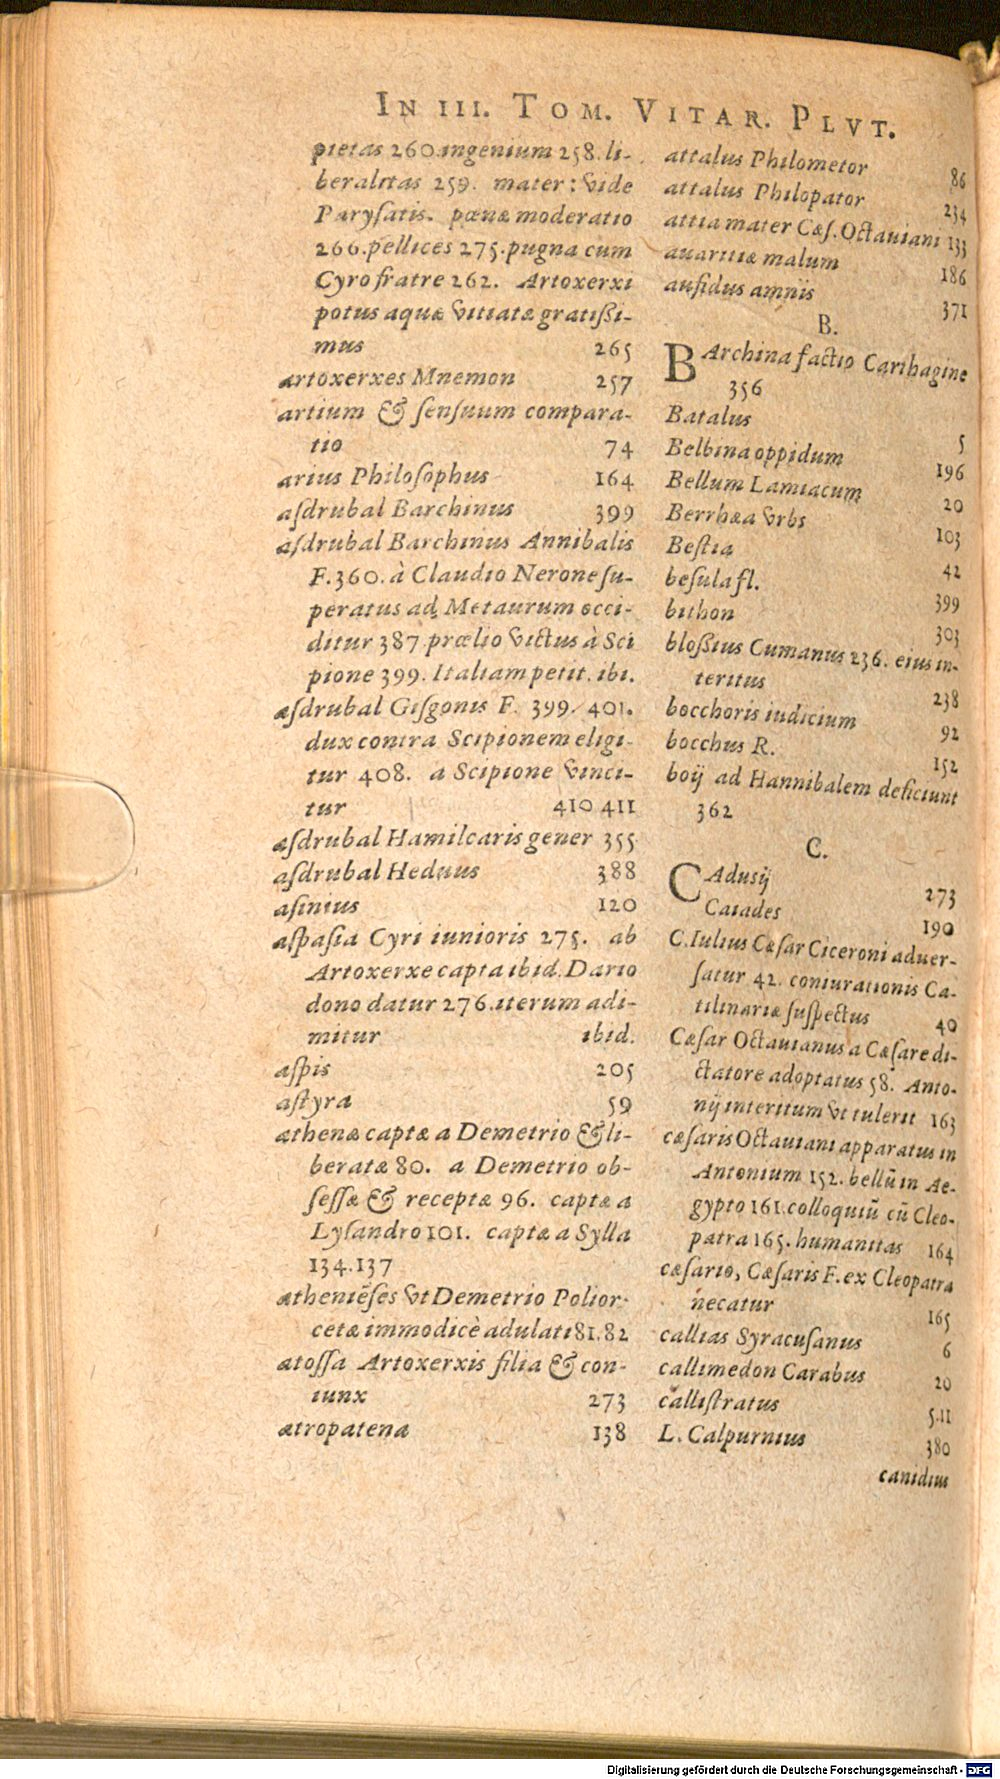 IN III. TOM. VITAR. PLVT.
pietas 260. ingenium 258. li-
beralitas 259. mater: vide
Parysatis. pœnæ moderatio
266. pellices 275. pugna cum
Cyro fratre 262. Artoxerxi
potus aquæ vitiatæ gratißi-
mus 265
artoxerxes Mnemon 257
artium & sensuum compara-
tio 74
arius Philosophus 164
asdrubal Barchinus 399
asdrubal Barchinus Annibalis
F. 360. à Claudio Nerone su-
peratus ad Metaurum occi-
ditur 387. prœlio victus à Sci
pione 399. Italiam petit. ibi.
asdrubal Gisgonis F. 399. 401.
dux contra Scipionem eligi-
tur 408. a Scipione vinci-
tur 410 411
asdrubal Hamilcaris gener 355
asdrubal Heduus 388
asinius 120
aspasia Cyri iunioris 275. ab
Artoxerxe capta ibid. Dario
dono datur 276. iterum adi-
mitur ibid.
aspis 205
astyra 59
athenæ captæ a Demetrio & li-
beratæ 80. a Demetrio ob-
sessæ & receptæ 96. captæ a
Lysandro 101. captæ a Sylla
134. 137
atheniẽses vt Demetrio Polior-
cetæ immodicè adulati 81. 82
atossa Artoxerxis filia & con-
iunx 273
atropatena 138
attalus Philometor 86
attalus Philopator 234
attia mater Cæs. Octauiani 133
auaritiæ malum 186
aufidus amnis 371
B.
BArchina factio Carthagine
356
Batalus 5
Belbina oppidum 196
Bellum Lamiacum 20
Berrhæa vrbs 103
Bestia 42
besula fl. 399
bithon 303
bloßius Cumanus 236. eius in-
teritus 238
bocchoris iudicium 92
bocchus R. 152
boij ad Hannibalem deficiunt
362
C.
CAdusij 273
Caiades 190
C. Iulius Cæsar Ciceroni aduer-
satur 42. coniurationis Ca-
tilinariæ suspectus 40
Cæsar Octauianus a Cæsare di-
ctatore adoptatus 58. Anto-
nij interitum vt tulerit 163
cæsaris Octauiani apparatus in
Antonium 152. bellũ in Ae-
gypto 161. colloquiũ cũ Cleo-
patra 165. humanitas 164
cæsario, Cæsaris F. ex Cleopatra
necatur 165
callias Syracusanus 6
callimedon Carabus 20
callistratus 5. 11
L. Calpurnius 380
canidius
Digitalisierung gefördert durch die Deutsche Forschungsgemeinschaft - DFG